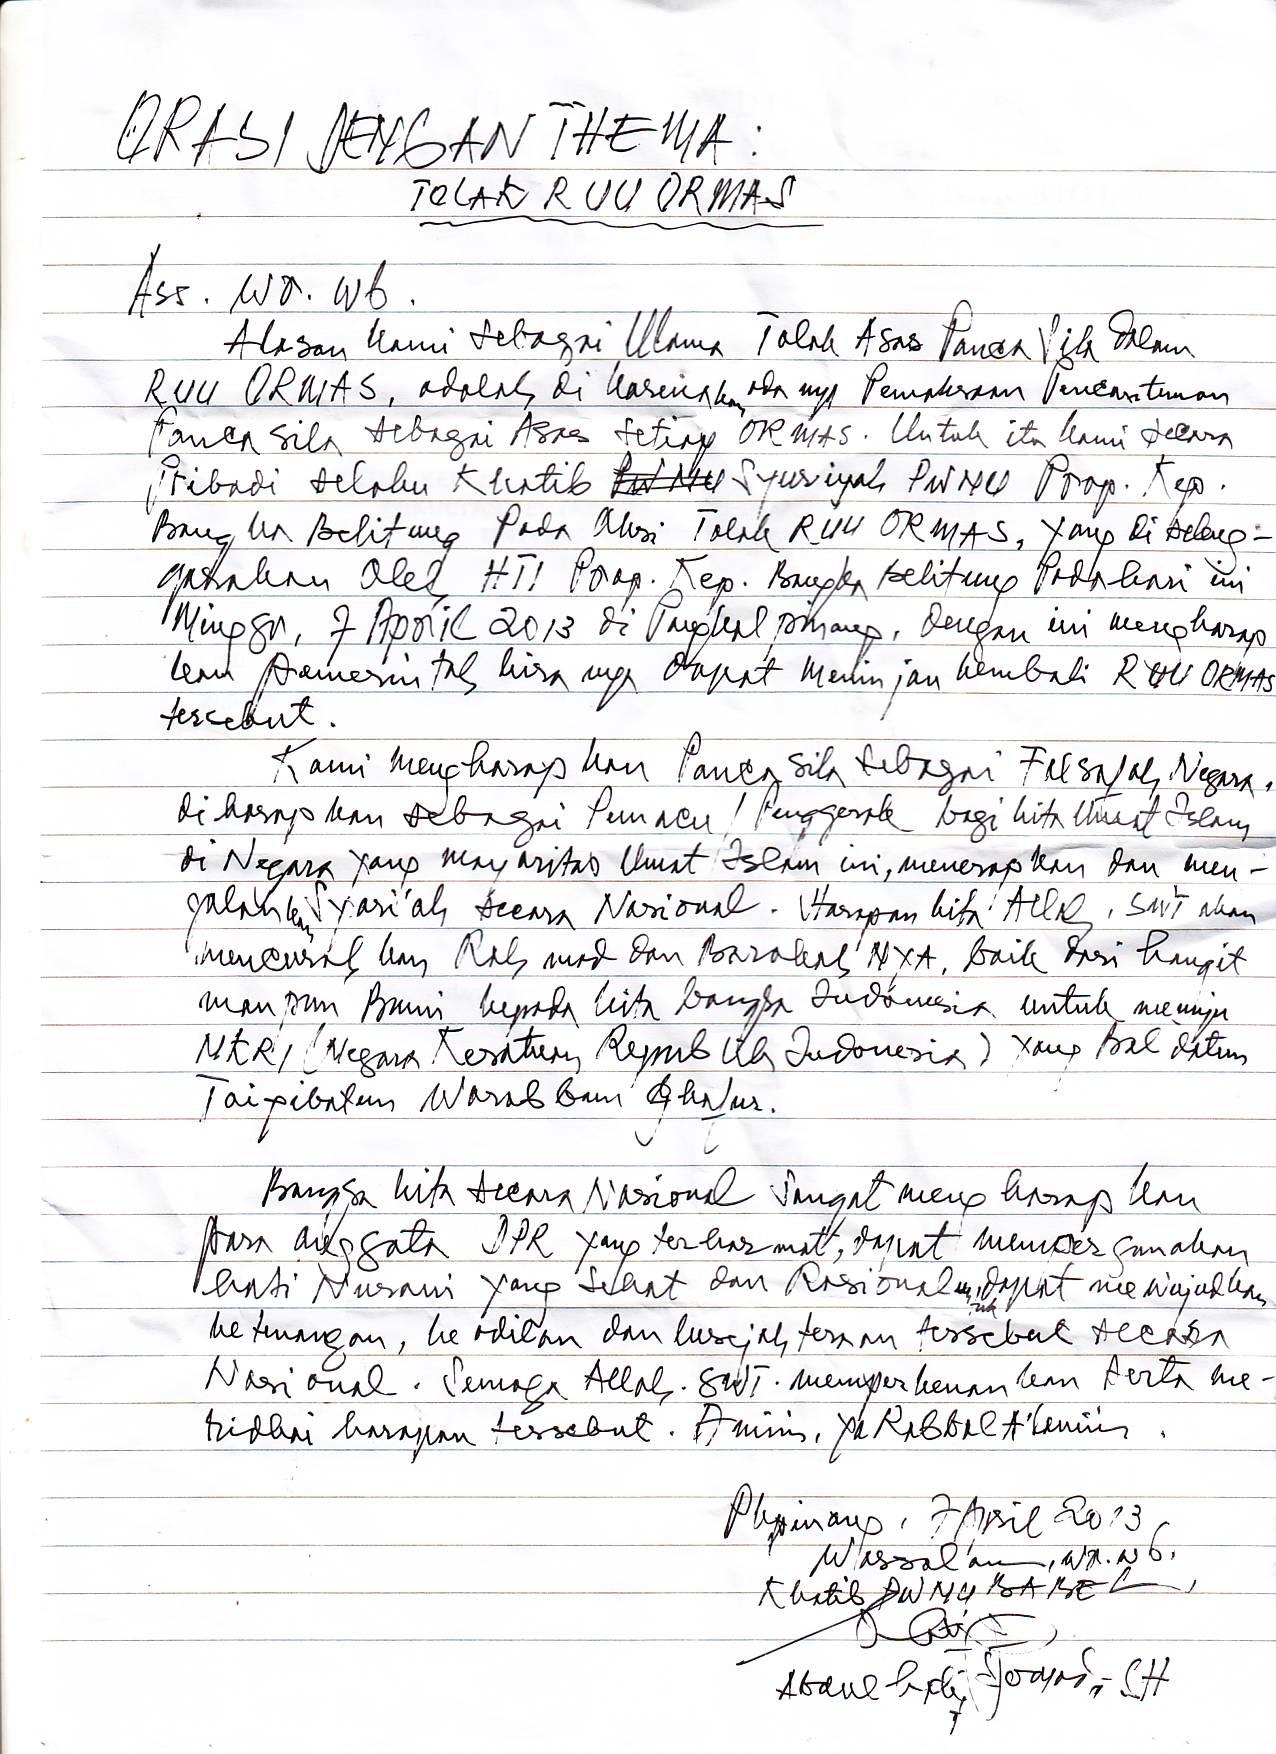 ORASI DENGAN THEMA :
TOLAK RUU ORMAS
Ass. Wr. Wb.
Alasan kami sebagai Ulama Tolak Asas Panca Sila dalam
RUU ORMAS, adalah di karenakan adanya Pemaksaan Pencantuman
Panca Sila sebagai Asas setiap ORMAS. Untuk itu kami secara
Pribadi selaku Khatib Syuriyah PWNU Prop. Kep.
Bangka Belitung Pada Aksi Tolak RUU ORMAS, yang di seleng-
garakan Oleh HTI Prop. Kep. Bangka Belitung Pada hari ini
Minggu, 7 April 2013 di Pangkal pinang, dengan ini mengharap
kan Pemerintah kiranya dapat meninjau kembali RUU ORMAS
tersebut.
Kami mengharapkan Panca Sila sebagai Falsafah Negara,
di harapkan sebagai Pemacu / Penggerak bagi kita Umat Islam
di Negara yang mayoritas Umat Islam ini, menerapkan dan men-
jalankan Syari'ah secara Nasional. Harapan kita Allah, SWT akan
mencurahkan Rahmad dan Barokah NYA, baik dari langit
maupun Bumi kepada kita bangsa Indonesia untuk menuju
NKRI (Negara Kesatuan Republik Indonesia) yang Baldatun
Toiyibatun Warabbun Ghafur.
Bangsa kita secara Nasional Sangat mengharapkan
para anggota DPR yang terhormat, dapat mempergunakan
hati Nurani yang Sehat dan Rasional untuk dapat mewujudkan
ketenangan, keadilan dan kesejahteraan tersebut secara
Nasional. Semoga Allah. SWT. memperkenankan serta me-
ridhai harapan tersebut. Amin, ya Rabbal A'lamin.
Pkpinang, 7 April 2013
Wassalam, wr. wb.
Khatib PWNU BABEL,
Abdul SH